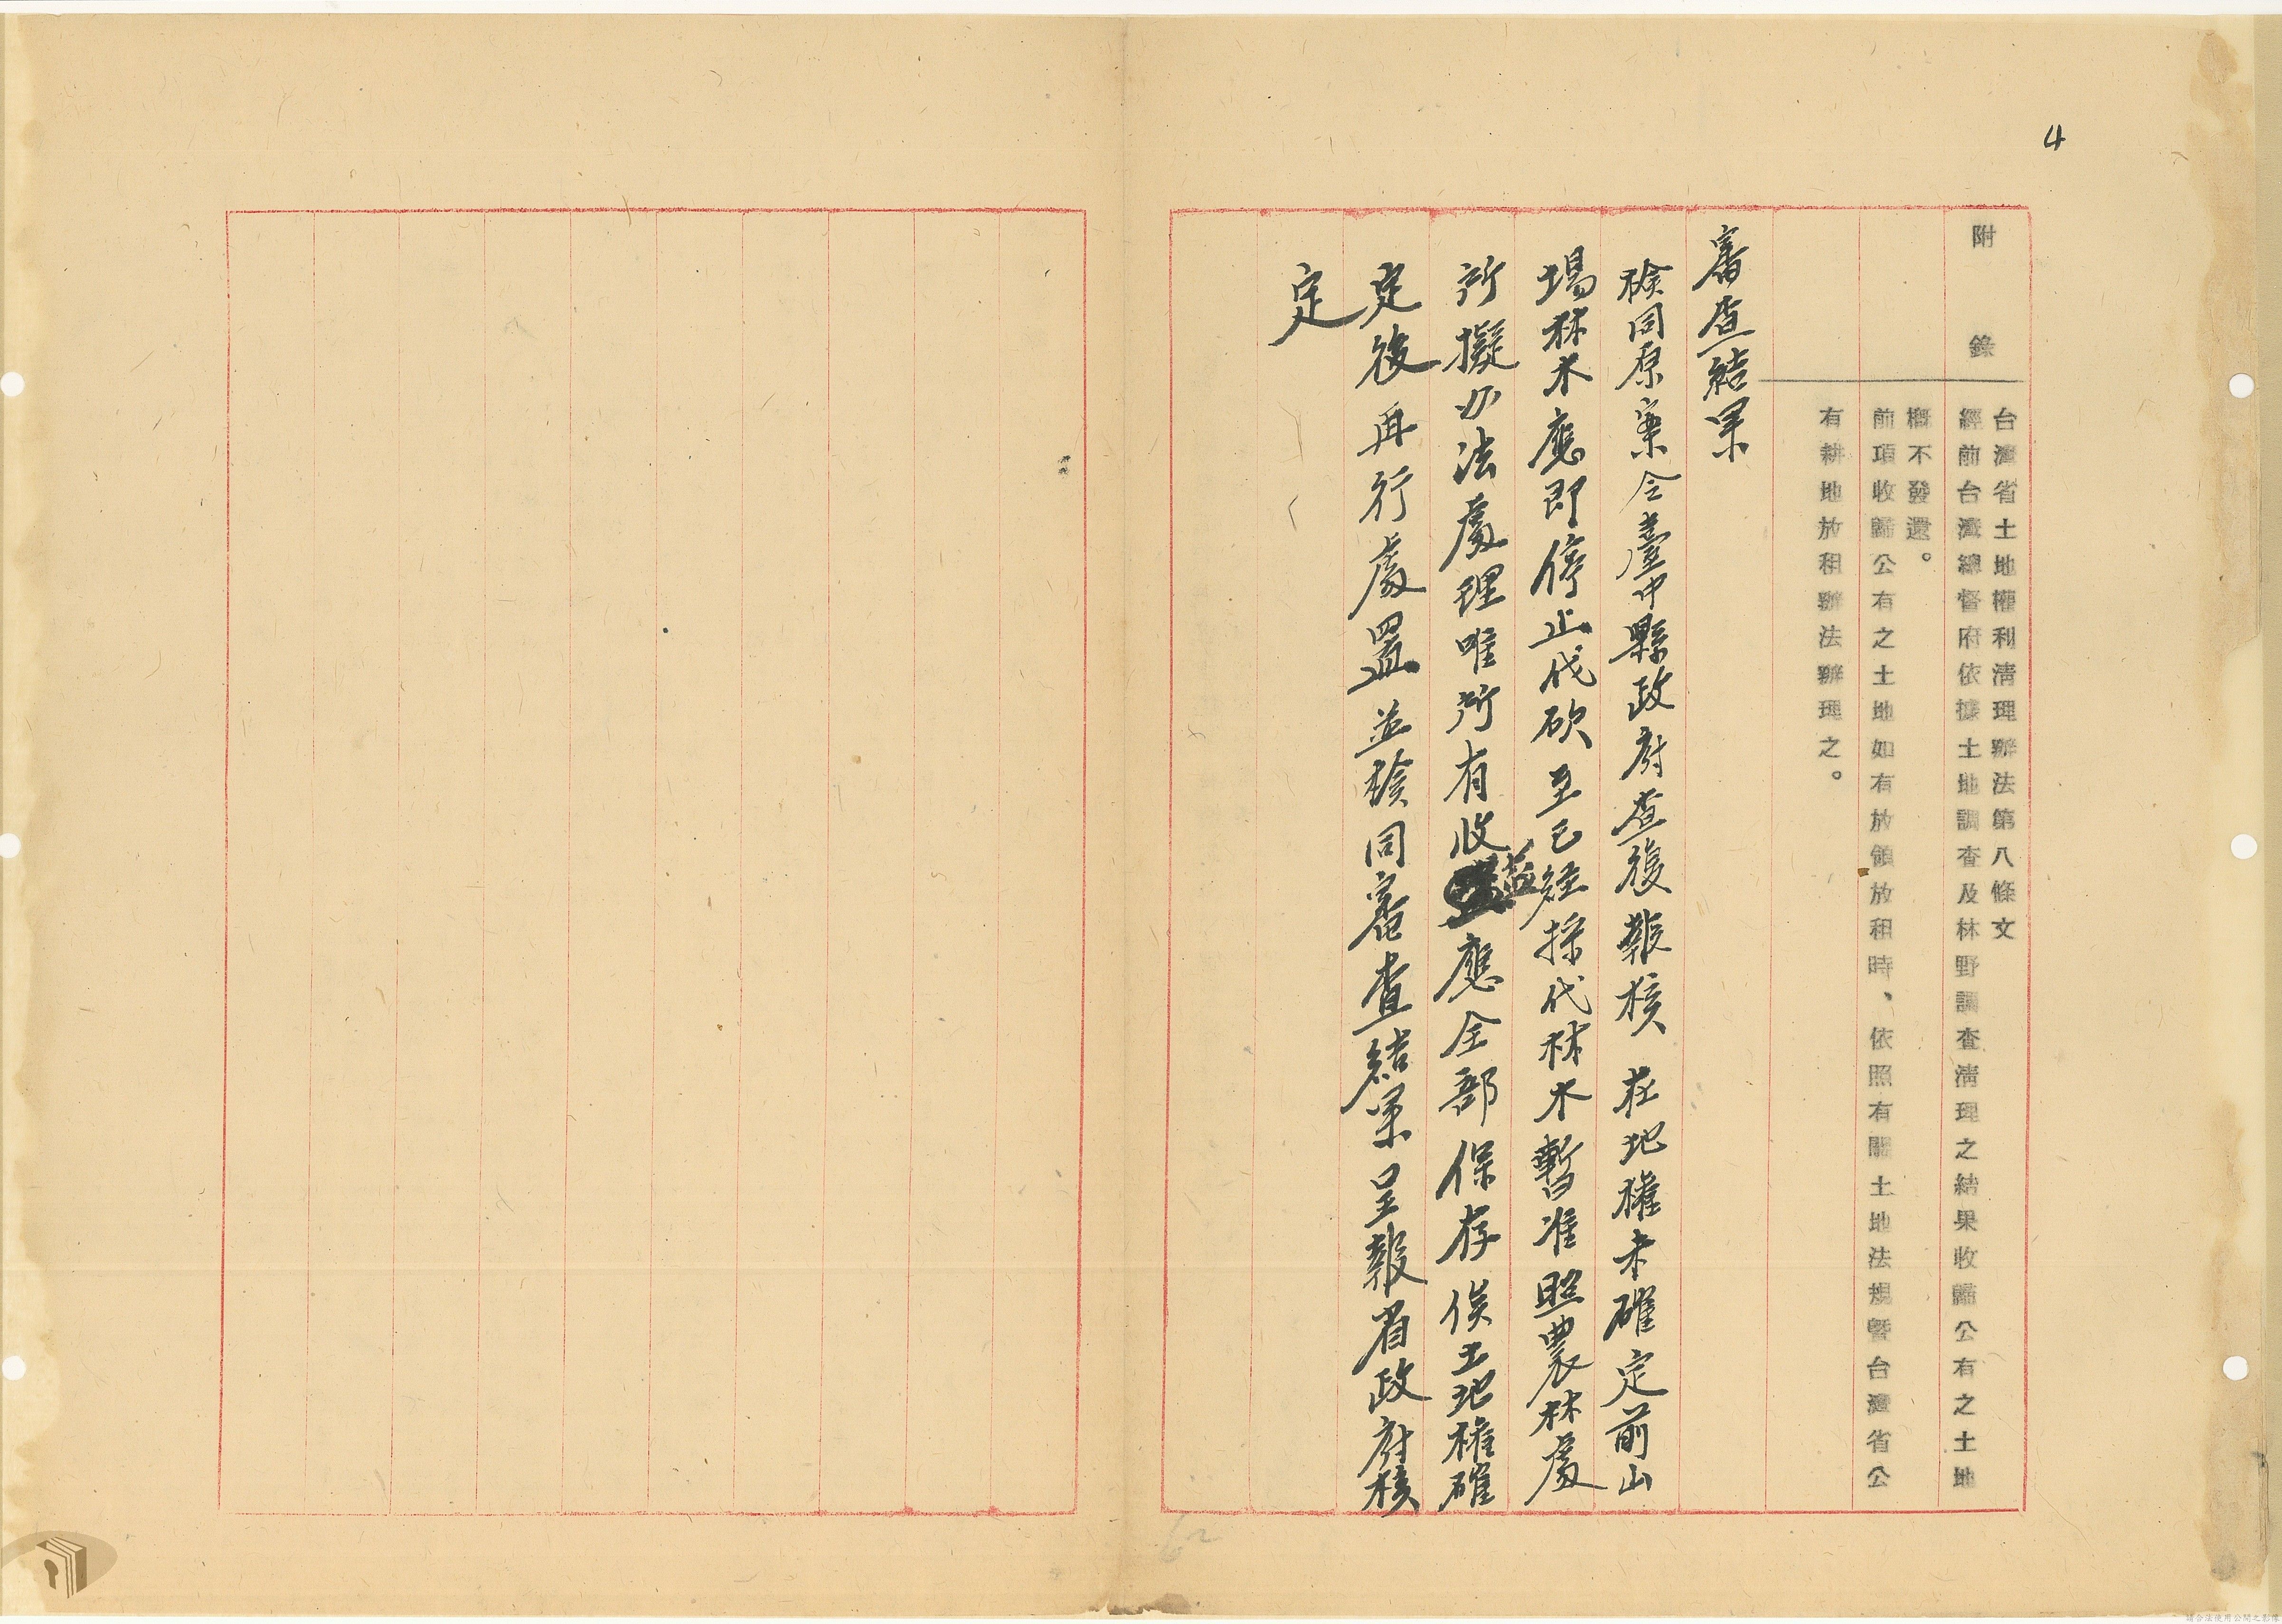 4
附錄
台灣省土地權利清理辦法第八條文
經前台灣總督府依據土地調查及林野調查清理之結果收歸公有之土地
概不發還。
前項收歸公有之土地如有放領放租時、依照有關土地法規暨台灣省公
有耕地放租辦法辦理之。
審查結果
檢同原案令臺中縣政府查復報核在地權未確定前山
場林木應即停止伐砍至已經採代林木暫准照農林處
所擬办法處理唯所有收益應全部保存俟土地權確
定後再行處置並檢同審查結果呈報省政府核
定